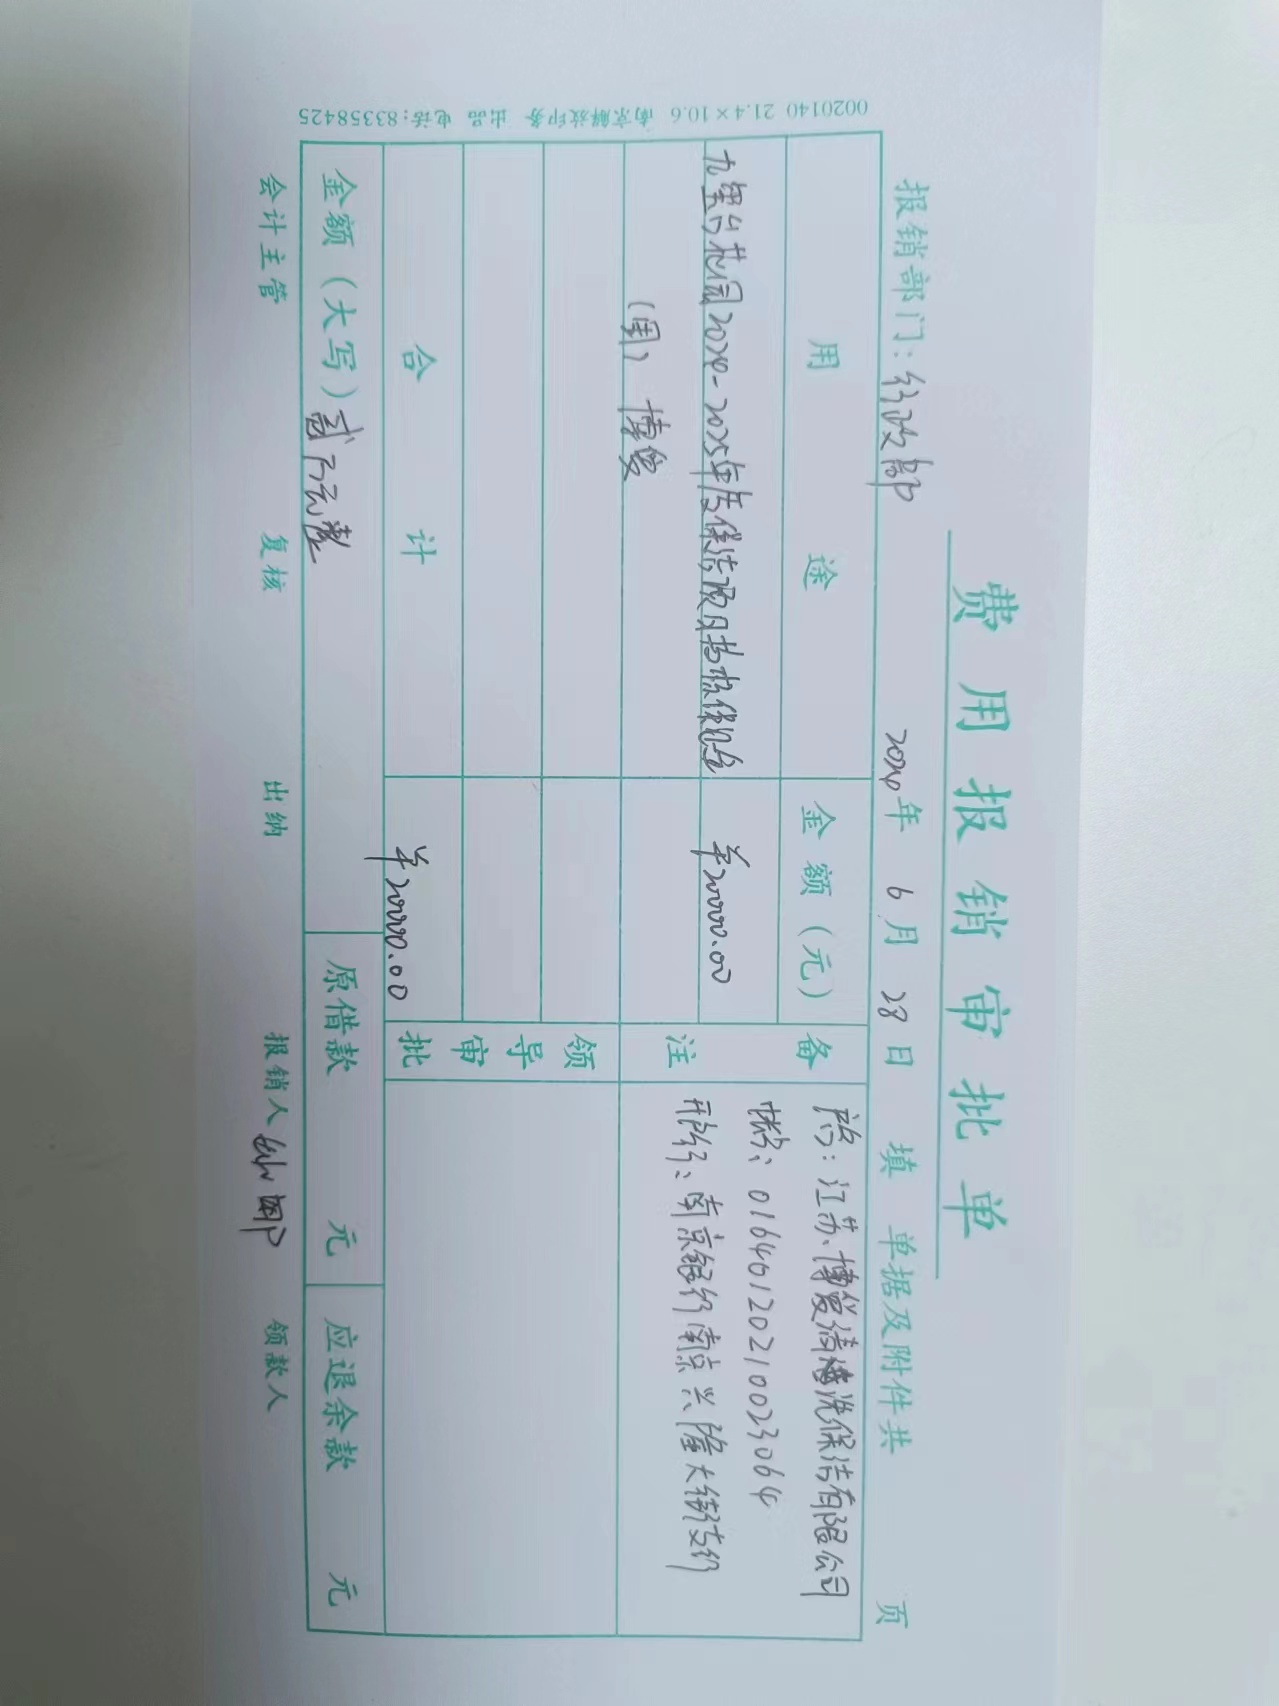 费用报销审批单
报销部门：行政部 2024年 6月 28日 填 单据及附件共 页
用途 金额（元） 备注
九里台花园2024-2025年度保洁项目投标保证金 ¥20000.00
（退） 博俊
户名：江苏博俊清洗保洁有限公司
帐号：01640120210023064
开户行：南京银行南京兴隆大街支行
领导审批
合计 ¥20000.00
金额（大写）贰万元整 原借款 元 应退余款 元
会计主管 复核 出纳 报销人 领款人
0020140 21.4×10.6 南京解放印务 出品 电话:83358425